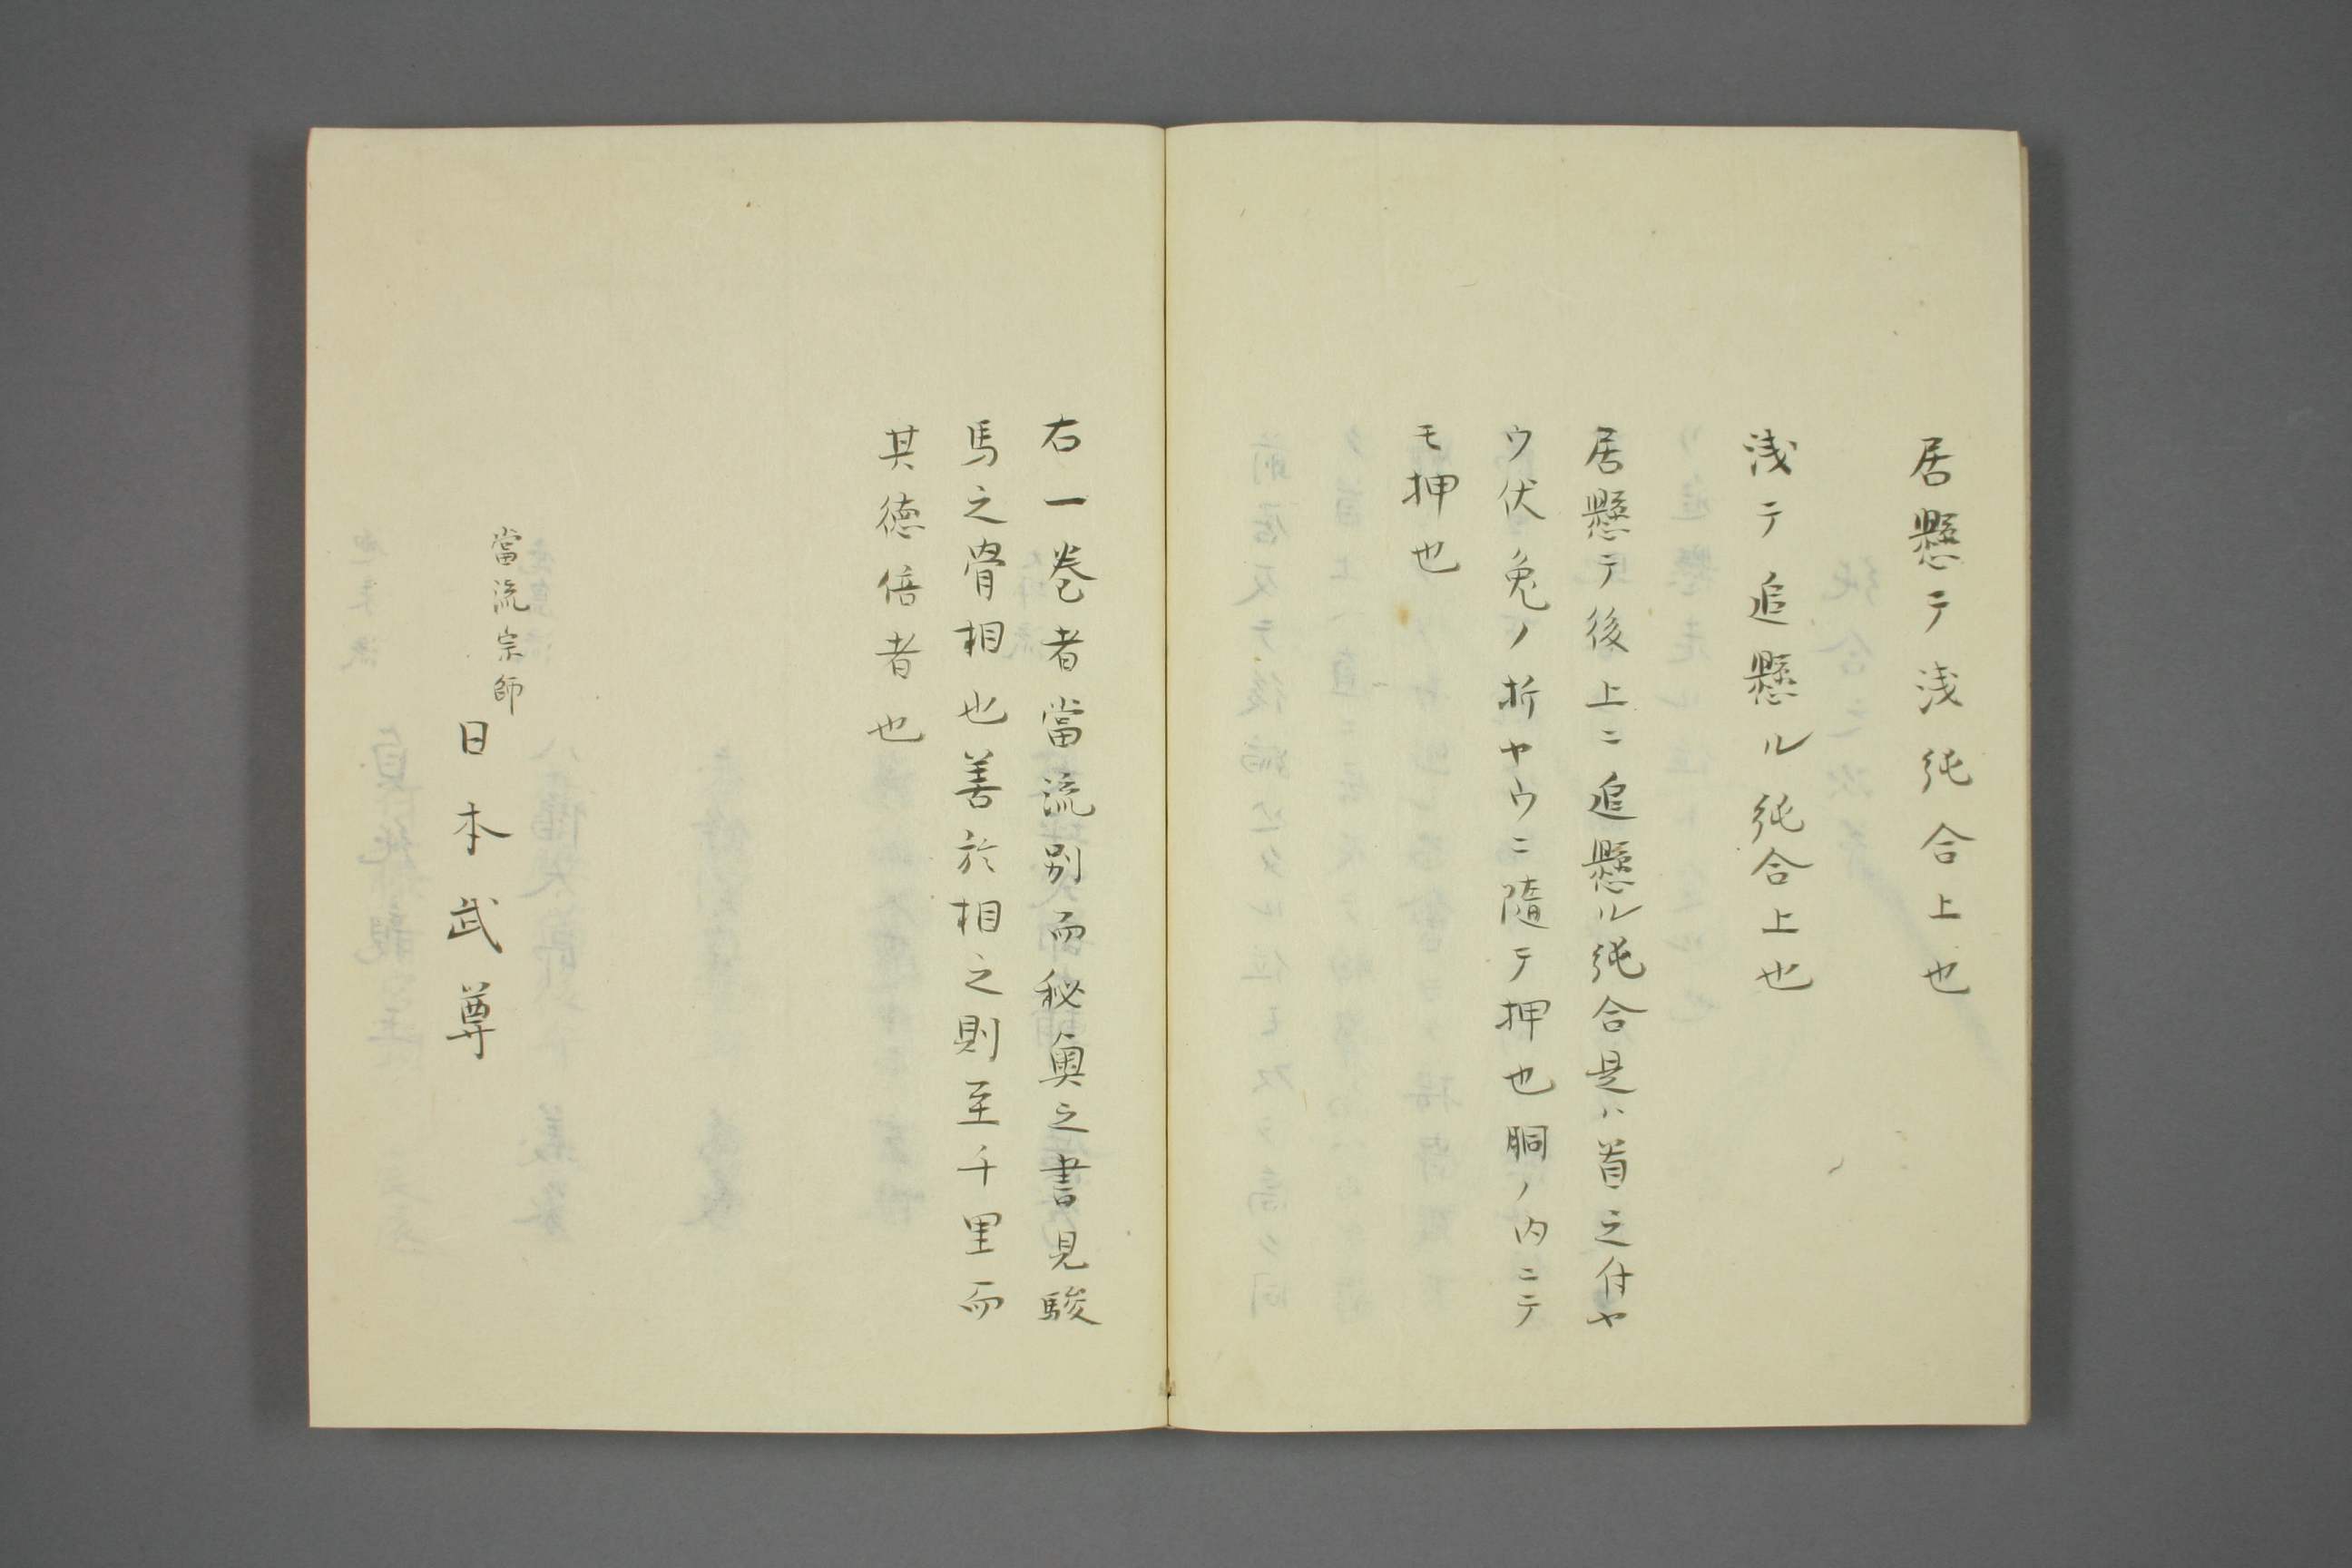 居懸テ浅純合上也
浅テ追懸ル純合上也
居懸テ後上ニ追懸ル純合是ハ首之付ヤ
ウ伏兎ノ折ヤウニ隨テ押也胴ノ内ニテ
モ押也
右一巻者當流別而秘奥之書見駿
馬之骨相也善於相之則至千里而
其徳倍者也
當流宗師
日本武尊